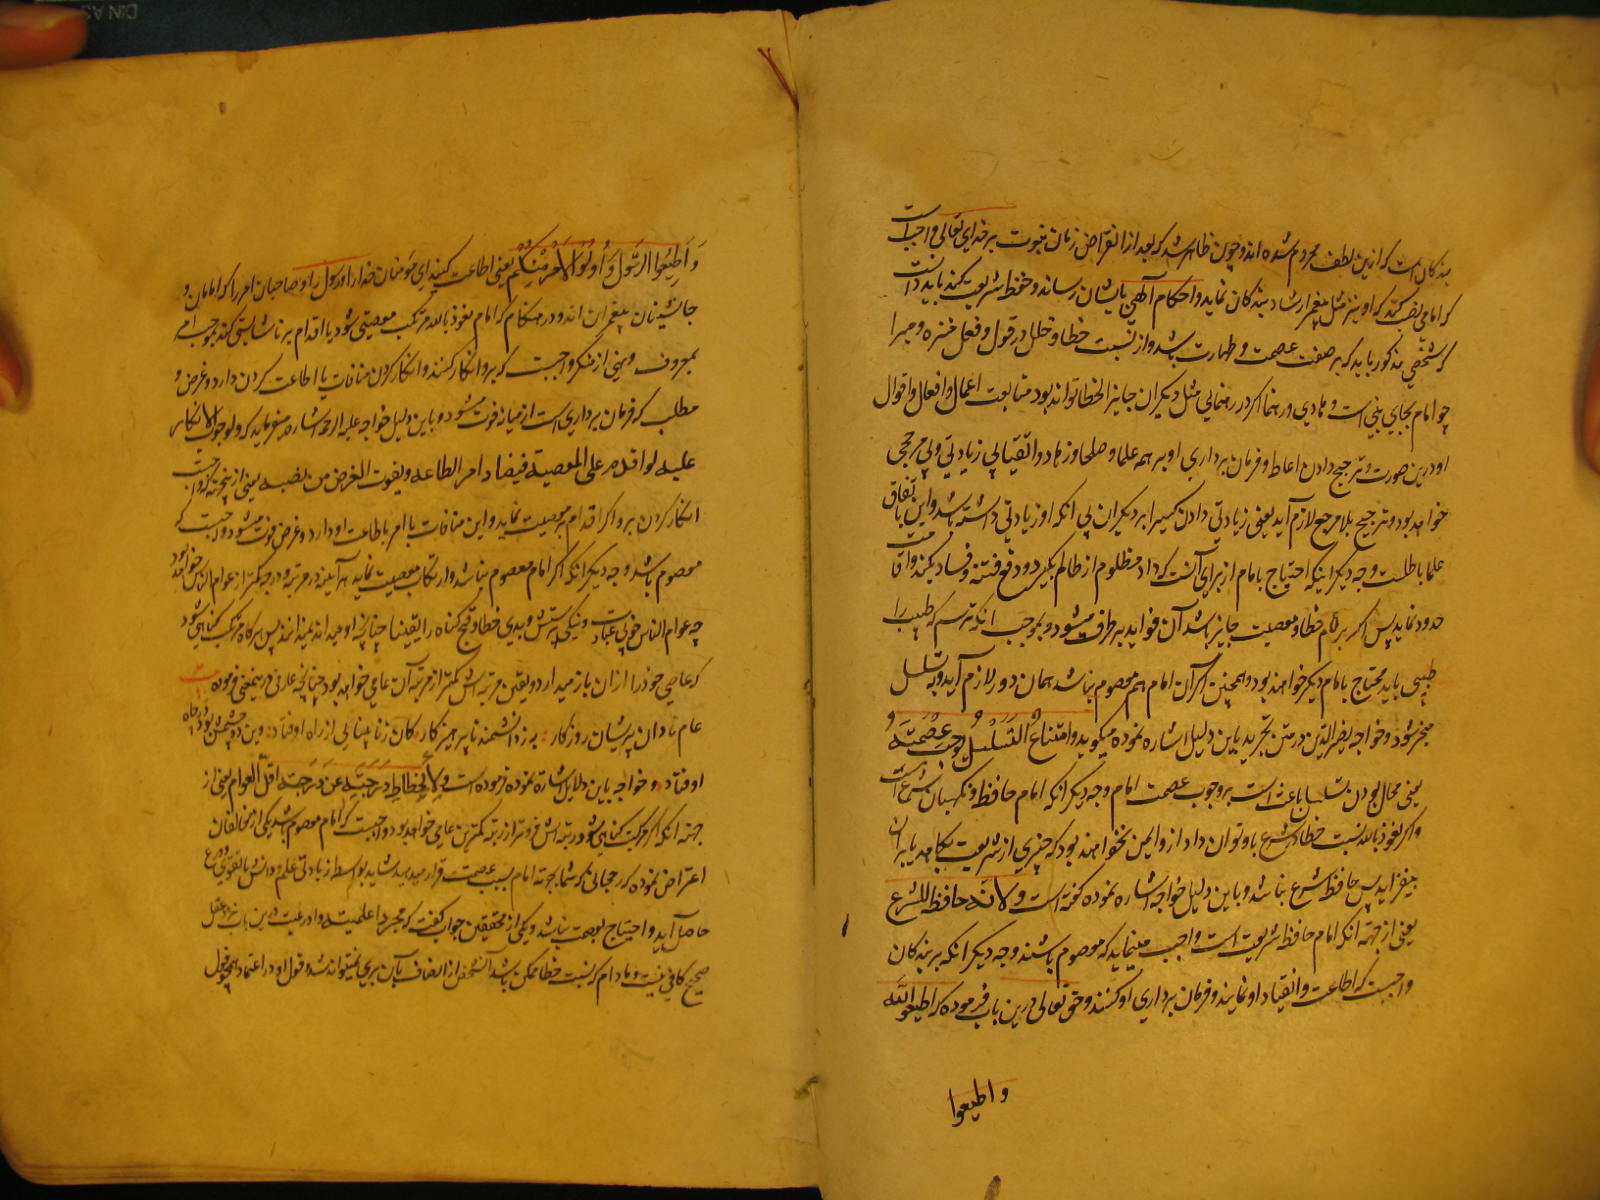 بندگان است که ازین لطف محروم شده اند و چون ظاهر شد که بعد از انقراض زمان نبوت بر خدای تعالی واجب است
که امامی نصب کند که او نیز مثل پیغمبر ارشاد بندگان نماید و احکام آلهی بایشان رساند و حفظ شریعت کند باید دانست
که شخص مذکور باید که بر صفت عصمت و طهارت باشد و از نسبت خطا و خلل در قول و فعل منزه و مبرا
چو امام بجای نبی است و هادی و رهنما اگر در رهنمایی مثل دیگران جایز الخطا تواند بود متابعت اعمال و افعال و اقوال
او درین صورت و ترجیح دادن اطاعت و فرمان برداری او بر همه علما و صلحا و زهاد و اتقیا بی زیادتی و بی مرجحی
خواهد بود و ترجیح بلا مرجح لازم آید یعنی زیادتی دادن کسی را بر دیگران بی آنکه او زیادتی داشته باشد و این باتفاق
علما باطلست وجه دیگر اینکه احتیاج بامام از برای آنست که داد مظلوم از ظالم بگیرد و دفع فتنه و فساد بکند و اقامت
حدود نماید پس اگر بر امام خطا و معصیت جایز باشد آن فواید برطرف میشود و بموجب آنکه ترسم که طبیب را
طبیبی باید محتاج بامام دیگر خواهند بود و همچنین اگر آن امام هم معصوم نباشد همان دور لازم آید و به تسلسل
منجر شود و خواجه نصیرالدین در متن تجرید باین دلیل اشاره نموده میگوید و امتناع التسلسل یوجب عصمته
یعنی محال بودن تسلسل باعث است بر وجوب عصمت امام وجه دیگر آنکه امام حافظ و نگهبان شرع است
و اگر نعوذ بالله نسبت خطا در شرع باو توان داد از و ایمن نخواهند بود که چیزی از شریعت بکاهد یا بران
بیفزاید پس حافظ شرع نباشد و باین دلیل خواجه اشاره نموده گفته است و لانه حافظ للشرع
یعنی از جهة آنکه امام حافظ شریعت است واجب مینماید که معصوم باشند وجه دیگر آنکه بر بندگان
واجبست که اطاعت و انقیاد او نمایند و فرمان برداری او کنند و حق تعالی درین باب فرموده که اطیعوا الله
و اطیعوا
و اطیعوا الرسول و اولوا الامر منکم یعنی اطاعت کنید ای مؤمنان خدا را و رسول را و صاحبان امر را که امامان و
جانشینان پیغمبران اند و در هنگام که امام نعوذ بالله مرتکب معصیتی شود یا اقدام بر ناشایستی کند بموجب امر
بمعروف و نهی از منکر واجبست که بر او انکار کنند و انکار کردن منافات با اطاعت کردن دارد و غرض و
مطلب که فرمان برداری است از میانه فوت میشود و باین دلیل خواجه علیه الرحمه اشاره میفرماید که و لوجوب الانکار
علیه لو اقدم علی المعصیة فیضاد امر الطاعه و یفوت الغرض من نصبه یعنی از جهة آنکه واجبست
انکار کردن بر و اگر اقدام بر معصیت نماید و این منافات با امر باطاعت او دارد و غرض فوت میشود واجبست که
معصوم باشد وجه دیگر آنکه اگر امام معصوم نباشد و ارتکاب معصیت نماید هر آینه در مرتبه و درجه کمتر از عوام الناس خواهد بود
چه عوام الناس خوبی عبادت و نیکی و زشتی و بدی خطا و قبح گناه را یقینا چنانچه او میداند نمیدانند پس هر گاه مرتکب گناهی شود
که عامی خود را از آن باز میدارد و یقین مرتبه اش کمتر از مرتبه آن عامی خواهد بود چنانچه عارفی در ینمعنی فرموده
عام نادان پریشان روزگار به ز دانشمند ناپرهیزگار کان ز نابینایی از راه اوفتاد وین دو چشمش بود و در چاه
اوفتاد و خواجه باین دلیل اشاره نموده فرموده است و لانحطاط درجته عن درجة اقل العوام یعنی از
جهته آنکه اگر مرتکب گناهی شود رتبه اش فروتر از رتبه کمترین عامی خواهد بود و واجبست که امام معصوم باشد یکی از مخالفان
اعتراض نموده که رجحانی که شما بجهة امام بسبب عصمت قرار میدهید شاید بواسطه زیادتی علم و دانش با تقوی و ورع
حاصل آید و احتیاج بعصمت نباشد و یکی از محققین جواب گفته که مجرد اعلمیت و اورعیت درین باب نزد عقل
صحیح کافی نیست و مادام که نسبت خطا ممکن باشد آن شخص از اتصاف بآن بری نمیتواند شد و قول او در اعتماد همچو قول